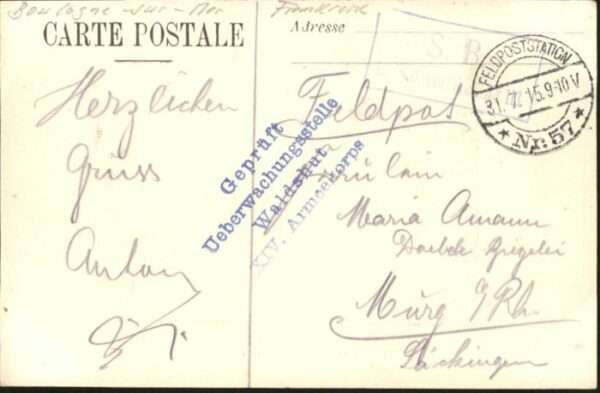 Boulogne-sur-Mer Frankreich
CARTE POSTALE
Adresse
S. B.
Feldpost
FELDPOSTSTATION
31.7.15.9-10V
* Nr. 57 *
Geprüft
Ueberwachungsstelle
Waldshut
XIV. Armeekorps
Herzlichen
Gruss
Anton
Fräulein
Maria Amann
Murg a/Rh.
Säckingen